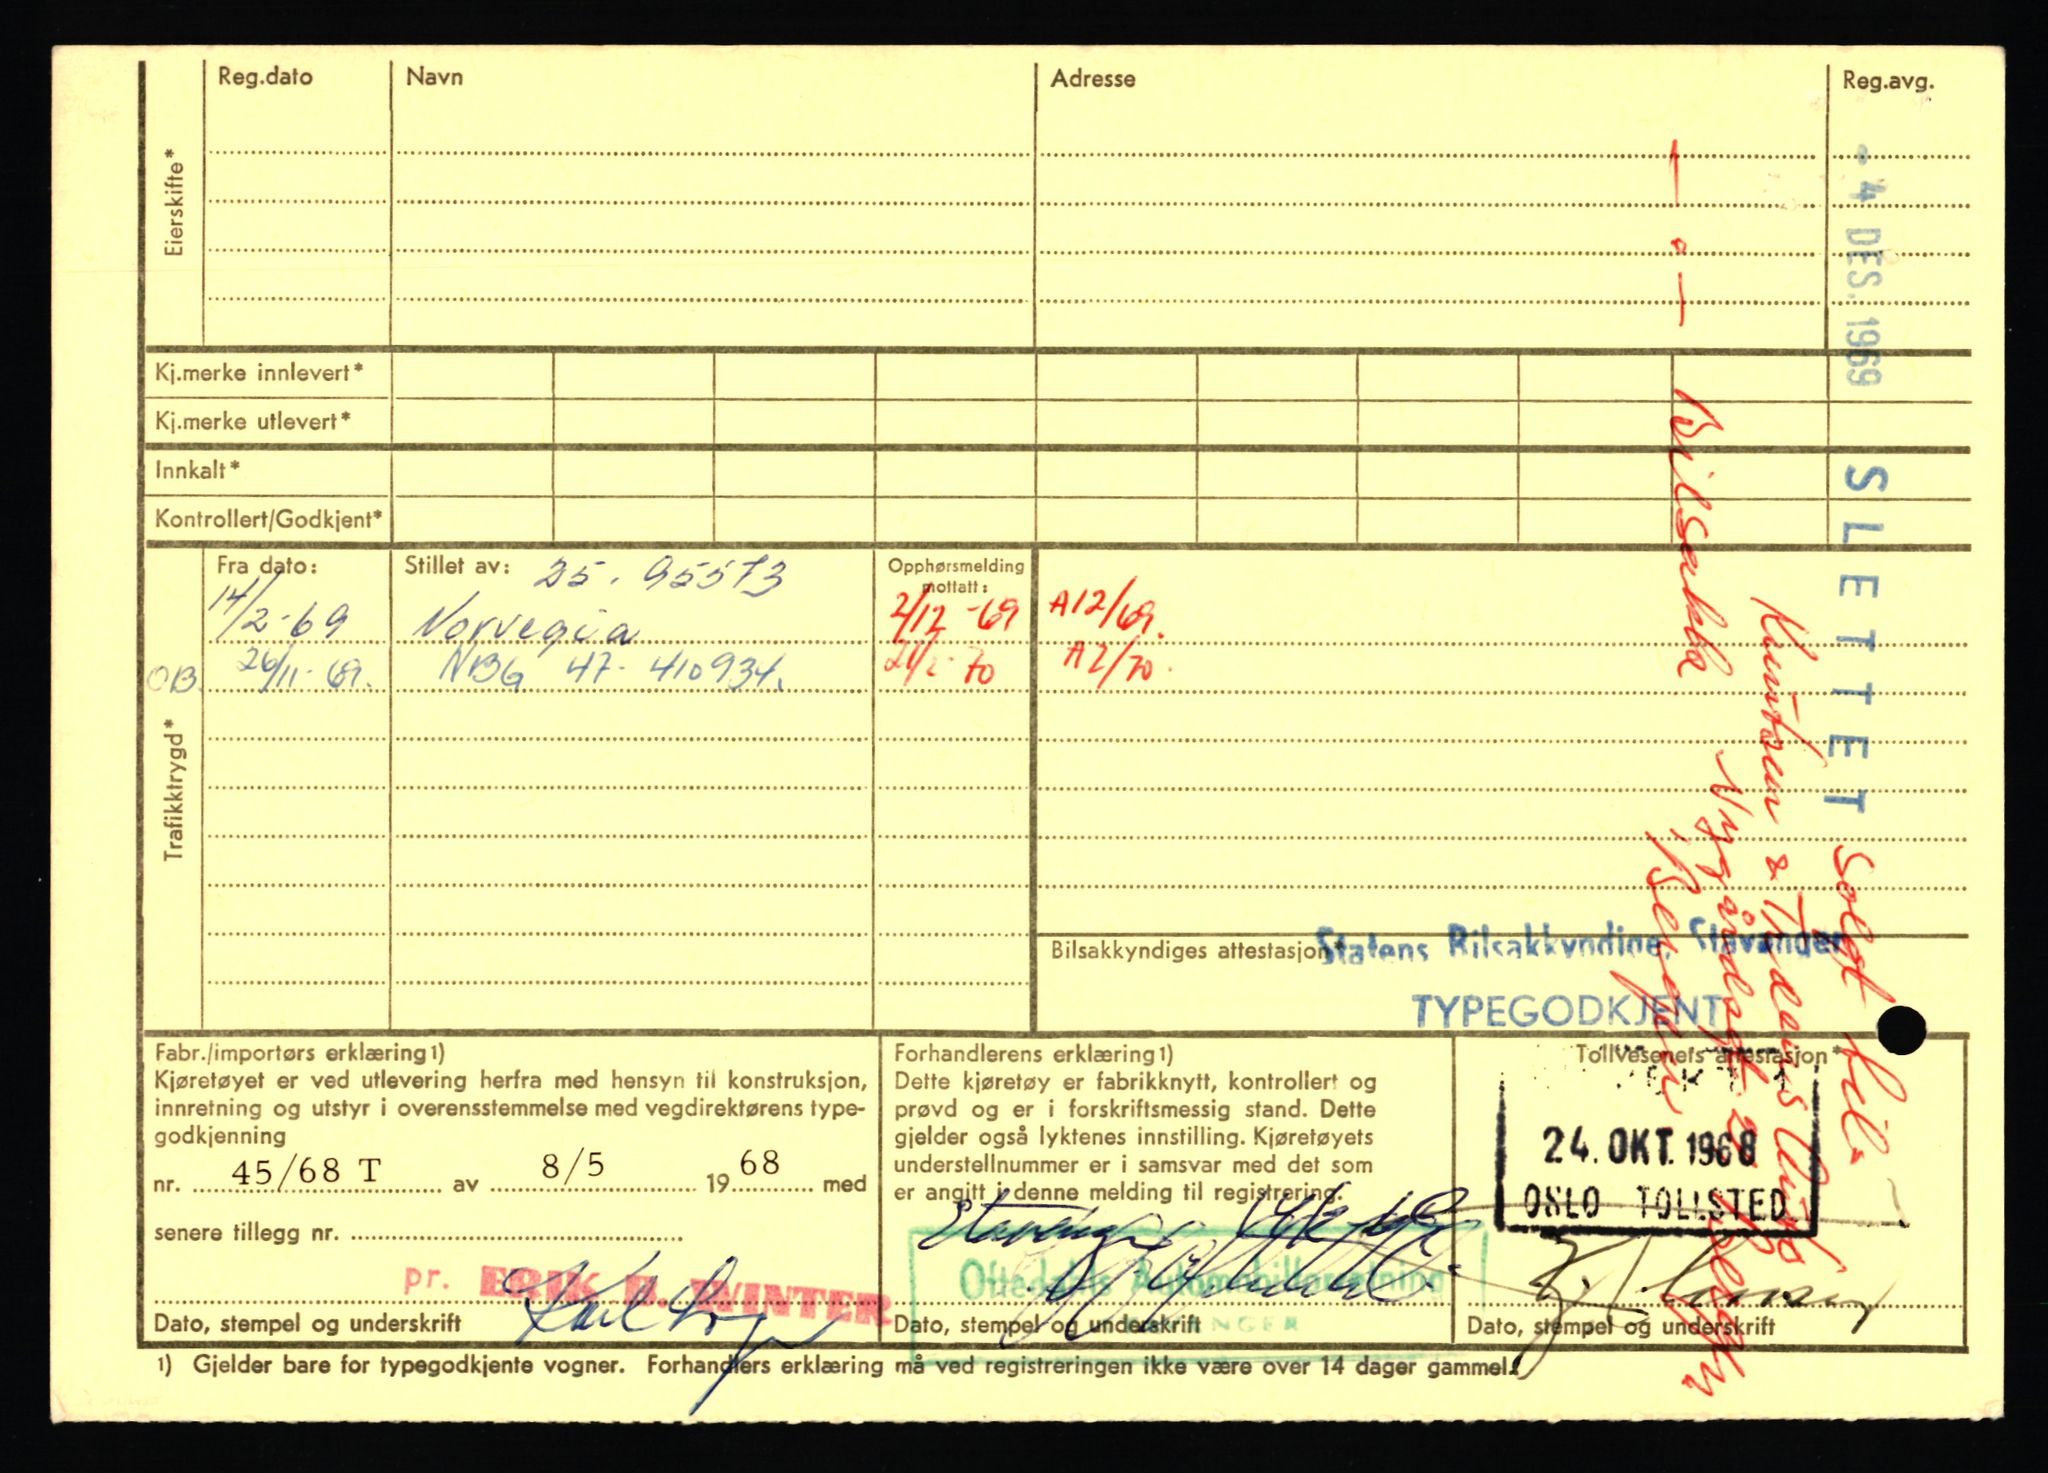 Reg.dato Navn Adresse Reg.avg.
Eierskifte*
- 4 DES. 1969
Kj.merke innlevert*
Kj.merke utlevert*
Innkalt*
Kontrollert/Godkjent*
SLETTET
solgt til
& Trideans Auto
Nygårdsgt 2
Bergen
Bilsakk
Trafikktrygd*
Fra dato: Stillet av: 25. 95573 Opphørsmelding mottatt:
14/2-69 Norvegia 2/12-69 A12/69.
OB. 26/11-69. NBG 47-410934. 70 A2/70.
Bilsakkyndiges attestasjon
Statens Bilsakkyndige, Stavanger
TYPEGODKJENT
Fabr./importørs erklæring1)
Kjøretøyet er ved utlevering herfra med hensyn til konstruksjon,
innretning og utstyr i overensstemmelse med vegdirektørens type-
godkjenning
nr. 45/68 T av 8/5 1968 med
senere tillegg nr.
pr. ERIK B. WINTER
Dato, stempel og underskrift
Forhandlerens erklæring1)
Dette kjøretøy er fabrikknytt, kontrollert og
prøvd og er i forskriftsmessig stand. Dette
gjelder også lyktenes innstilling. Kjøretøyets
understellnummer er i samsvar med det som
er angitt i denne melding til registrering.
Oftedahls Automobilforretning
Dato, stempel og underskrift
Tollvesenets attestasjon*
24. OKT. 1968
OSLO TOLLSTED
Dato, stempel og underskrift
1) Gjelder bare for typegodkjente vogner. Forhandlers erklæring må ved registreringen ikke være over 14 dager gammel.